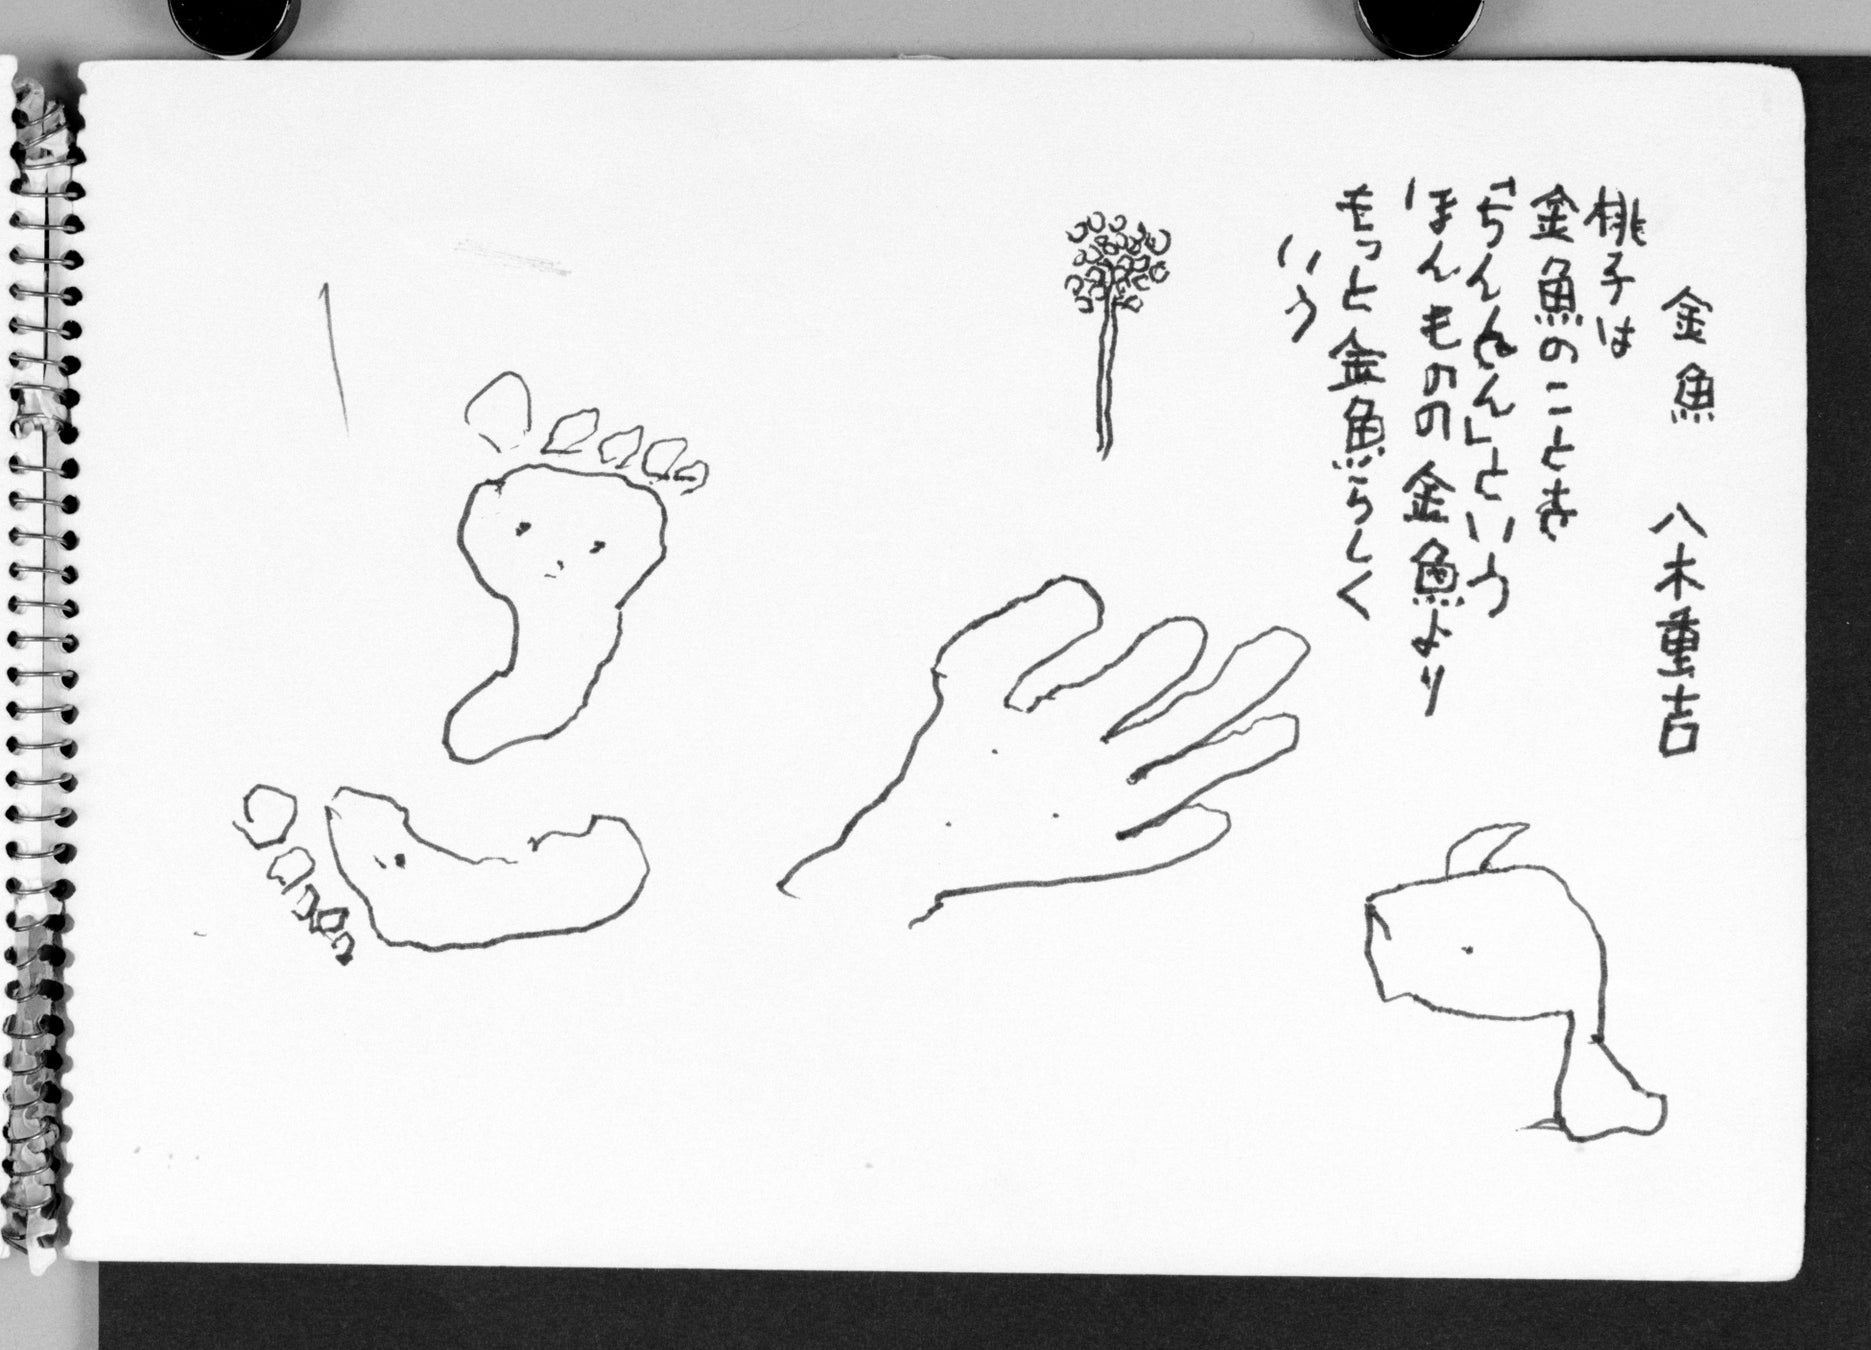 金魚　八木重吉
桃子は
金魚のことを
「ちんとん」という
ほんものの金魚より
もっと金魚らしく
いう